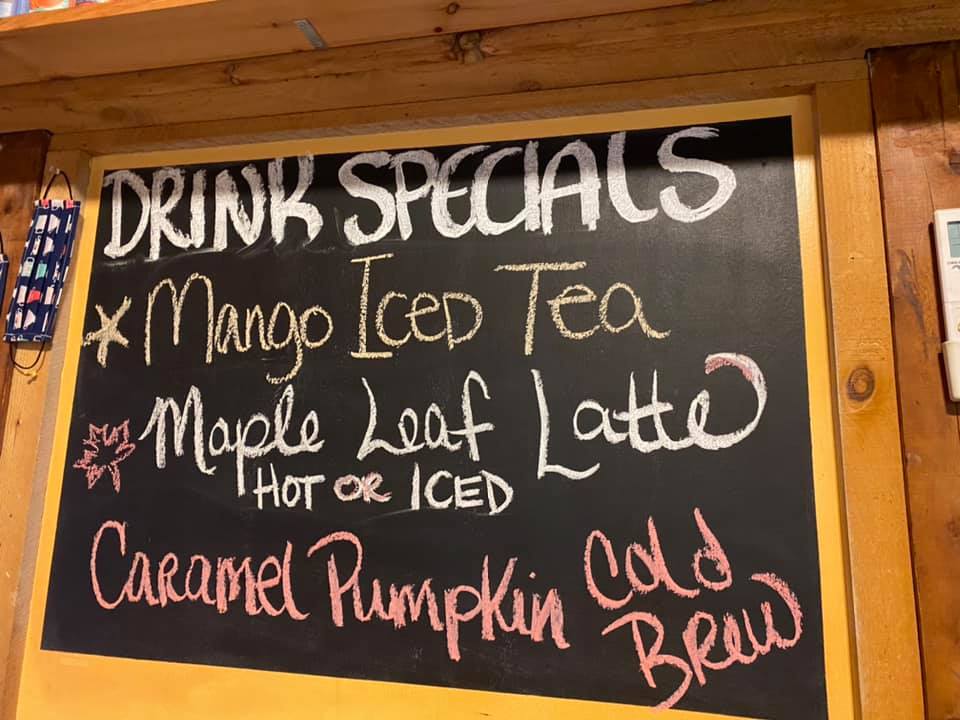 DRINK SPECIALS
Mango Iced Tea
Maple Leaf Latte
HOT OR ICED
Caramel Pumpkin Cold
Brew